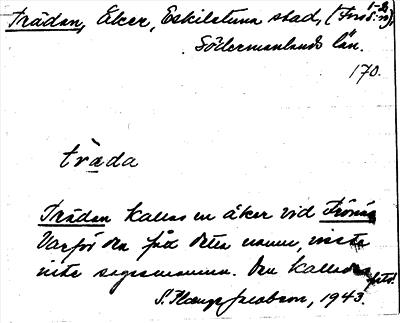 Trädan, Åker, Eskilstuna stad, (Fors
Södermanlands län.
170.
träda
Trädan kallas en åker vid Frönäs
Varför den fått detta namn, visste
inte sagesmannen. Den kallades
S. Hampf Jacobson, 1943.